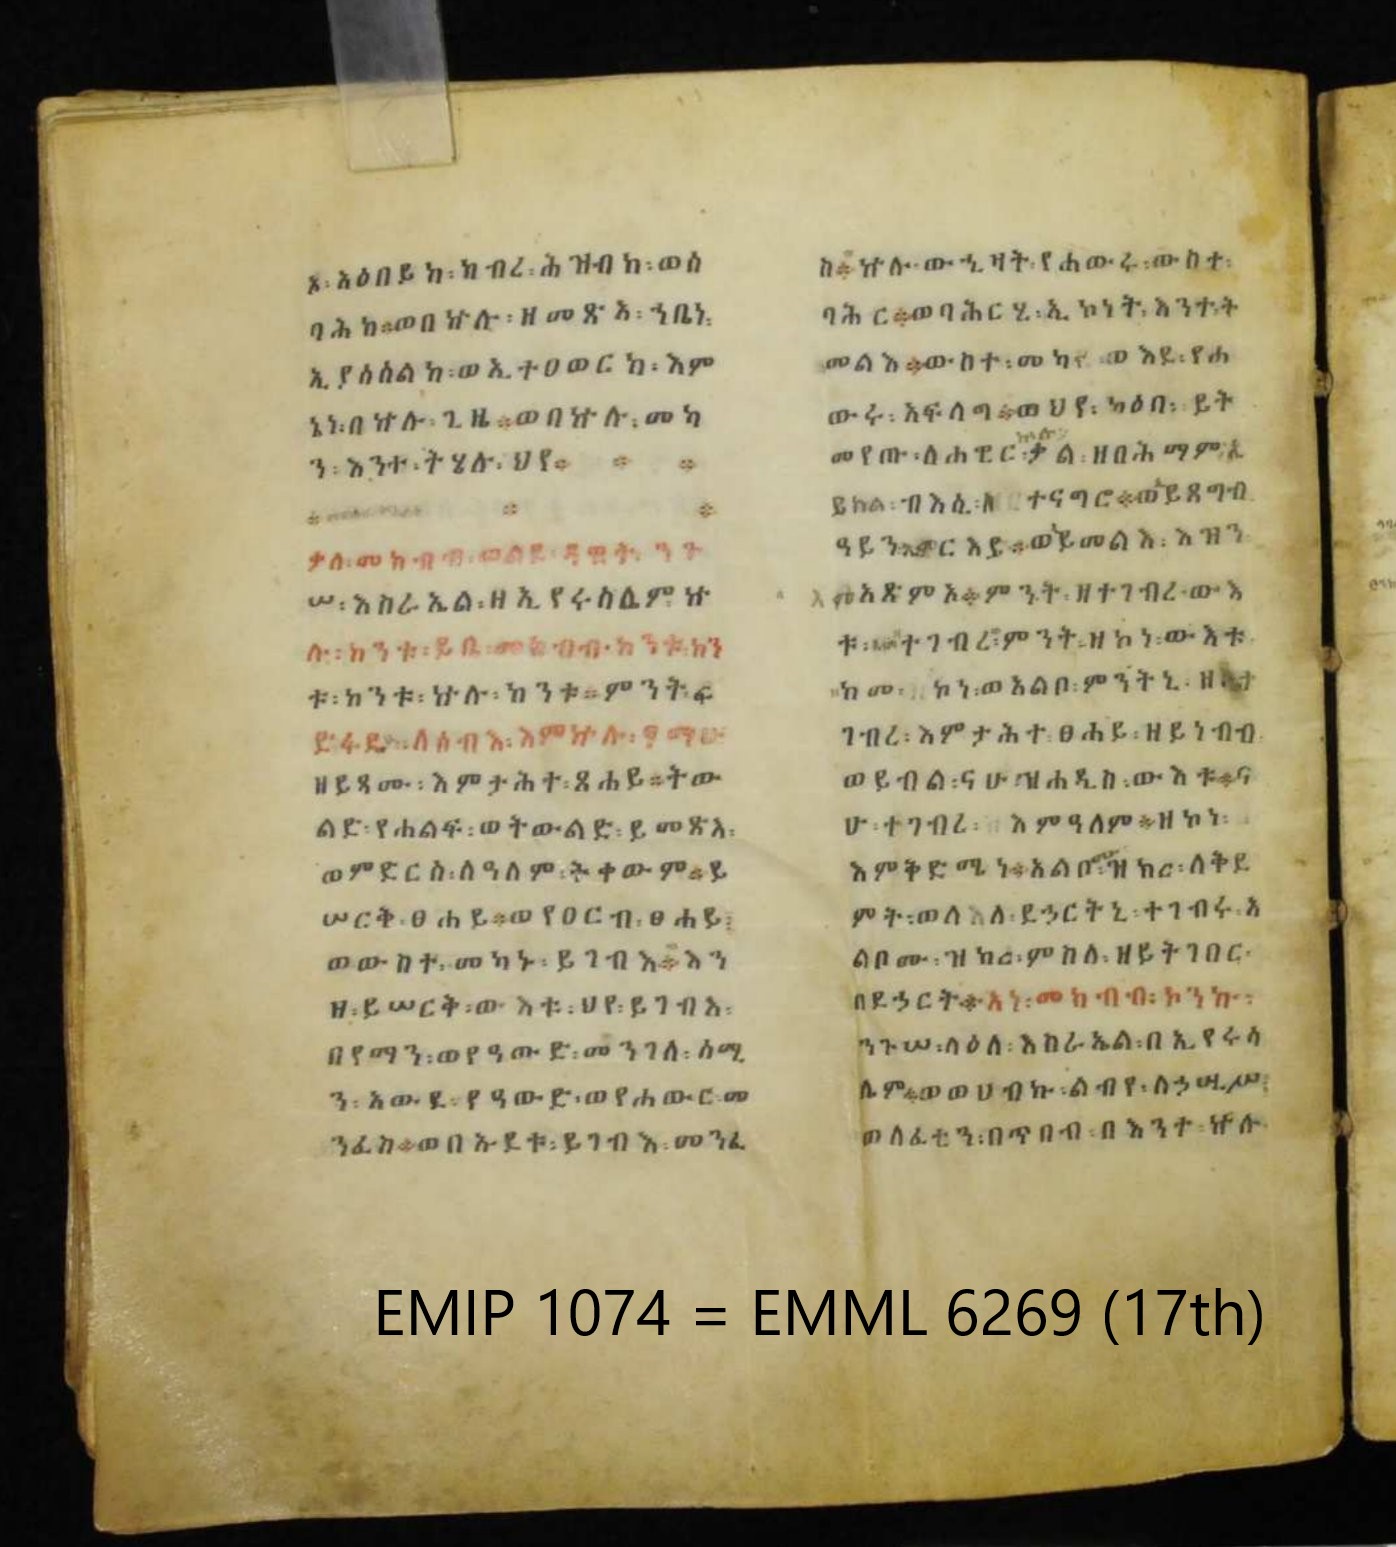 አዕበይከ፡ክብረ፡ሕዝብከ፡ወሰ
ባሕከ።ወበኵሉ፡ዘመጽአ፡ኀቤነ፡
ኢያሰስልከ፡ወኢተዐወርከ፡እም
ኔነ፡በኵሉ፡ጊዜ።ወበኵሉ፡መካ
ን፡እንተ፡ትሄሉ፡ህየ።
ቃለ፡መክብብ፡ወልደ፡ዳዊት፡ንጉ
ሠ፡እስራኤል፡ዘኢየሩስሌም፡ኵ
ሉ፡ከንቱ፡ይቤ፡መክብብ፡ከንቱ፡ከን
ቱ፡ከንቱ፡ኵሉ፡ከንቱ።ምንት፡ፍ
ድፋዱ፡ለሰብእ፡እምኵሉ፡ፃማሁ
ዘይጻሙ፡እምታሕተ፡ጸሐይ።ትው
ልድ፡የሐልፍ፡ወትውልድ፡ይመጽእ፡
ወምድርስ፡ለዓለም፡ትቀውም።ይ
ሠርቅ፡ፀሐይ።ወየዐርብ፡ፀሐይ፡
ወውስተ፡መካኑ፡ይገብእ።እን
ዘ፡ይሠርቅ፡ውእቱ፡ህየ፡ይገብእ፡
በየማን፡ወየዓውድ፡መንገለ፡ሰሜ
ን፡አውደ፡የዓውድ፡ወየሐውር፡መ
ንፈስ።ወበኡደቱ፡ይገብእ፡መንፈ
ስ።ኵሉ፡ውኂዛት፡የሐውሩ፡ውስተ፡
ባሕር።ወባሕርሂ፡ኢኮነት፡እንተ፡ት
መልእ።ውስተ፡መካን ወእደ፡የሐ
ውሩ፡አፍላግ።ወህየ፡ካዕበ፡ይት
መየጡ፡ለሐዊር፡ኵሉ ቃል፡ዘበሕማም፡ኢ
ይክል፡ብእሲ፡ለ ተናግሮ።ወኢይጸግብ
ዓይን፡ ርእይ።ወኢይመልእ፡እዝን
እምአጽምአ።ምንት፡ዘተገብረ፡ውእ
ቱ፡ ተገብረ፡ምንት፡ዘኮነ፡ውእቱ
ከመ፡ ኮነ፡ወአልቦ፡ምንትኒ፡
ገብረ፡እምታሕተ፡ፀሐይ፡ዘይነብብ
ወይብል፡ናሁ፡ዝሐዲስ፡ውእቱ።ና
ሁ፡ተገብረ፡ እምዓለም።ዘኮነ፡
እምቅድሜነ።አልቦ፡ዝክረ፡ለቅደ
ምት፡ወለ ለ፡ደኃርትኒ፡ተገብሩ፡አ
ልቦሙ፡ዝክረ፡ምስለ፡ዘይትገበር፡
በደኃርት።አነ፡መክብብ፡ኮንኩ፡
ንጉሠ፡ላዕለ፡እስራኤል፡በኢየሩሳ
ሌም።ወወሀብኩ፡ልብየ፡ለኃሢሥ፡
ወለፈቲን፡በጥበብ፡በእንተ፡ኵሉ
EMIP 1074 = EMML 6269 (17th)